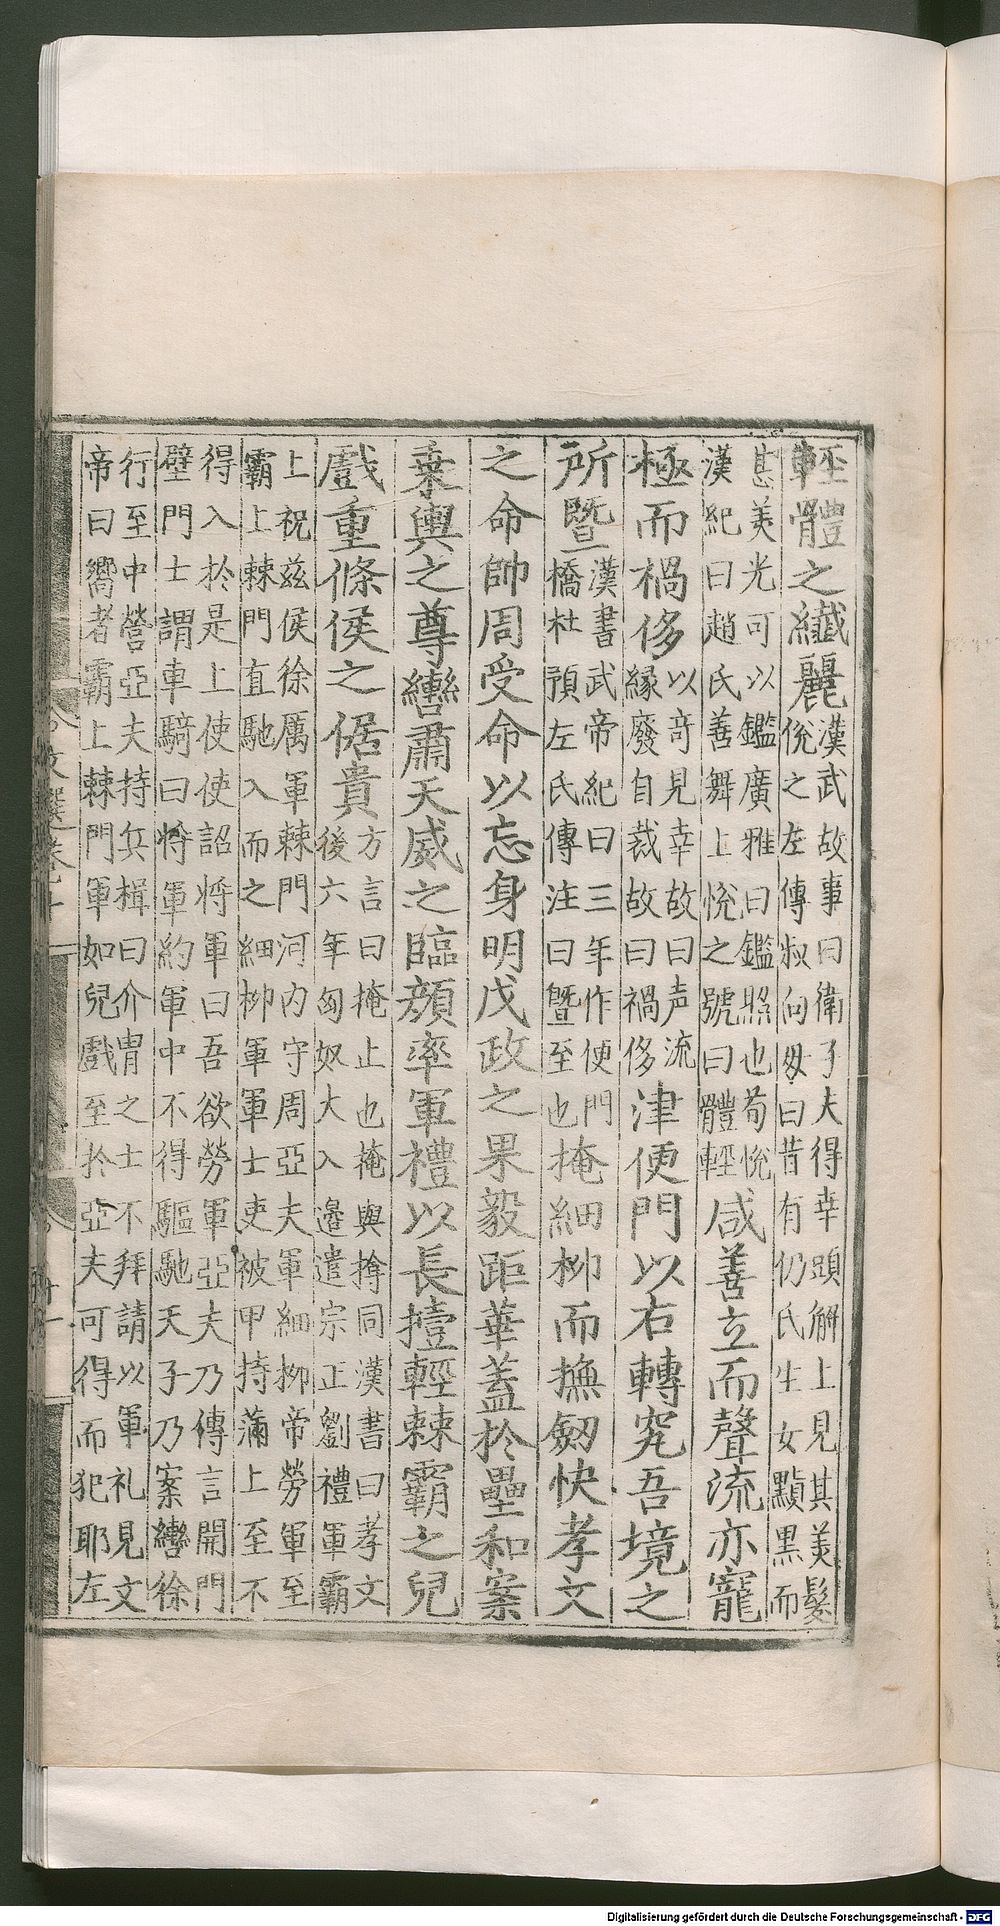 輕體之纖麗漢武故事曰衛子夫得幸頭解上見其美髮
悅之左傳叔向母曰昔有仍氏生女顯黑而
甚美光可以鑑廣雅曰鑑照也荀悅
漢紀曰趙氏善舞上悅之號曰體輕咸善立而聲流亦寵
極而禍侈以奇見幸故曰声流
緣廢自裁故曰禍侈津便門以右轉究吾境之
所暨漢書武帝紀曰三年作便門
橋杜預左氏傳注曰曁至也掩細柳而撫劒快孝文
之命帥周受命以忘身明戊政之果毅距華蓋於壘和案
乗輿之尊轡肅天威之臨顔率軍禮以長撎輕棘霸之兒
戲重條侯之倨貴方言曰掩止也掩與揜同漢書曰孝文
後六年匈奴大入邉遣宗正劉禮軍霸
上祝兹侯徐厲軍棘門河内守周亞夫軍細柳帝勞軍至
霸上棘門直馳入而之細柳軍軍士吏被甲持滿上至不
得入於是上使使詔將軍曰吾欲勞軍亞夫乃傳言開門
壁門士謂車騎曰將軍約軍中不得驅馳天子乃案轡徐
行至中營亞夫持兵楫曰介胄之士不拜請以軍礼見文
帝曰嚮者霸上棘門軍如兒戲至於亞夫可得而犯耶左
文選卷十
十一
Digitalisierung gefördert durch die Deutsche Forschungsgemeinschaft - DFG